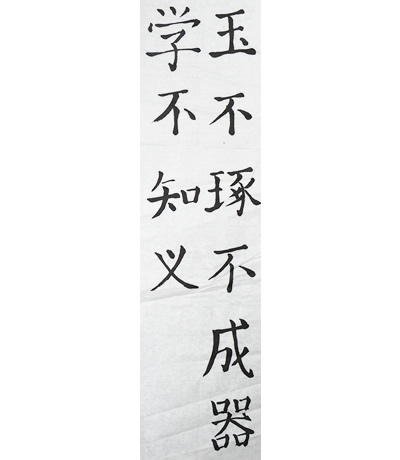 玉不琢不成器
学不知义